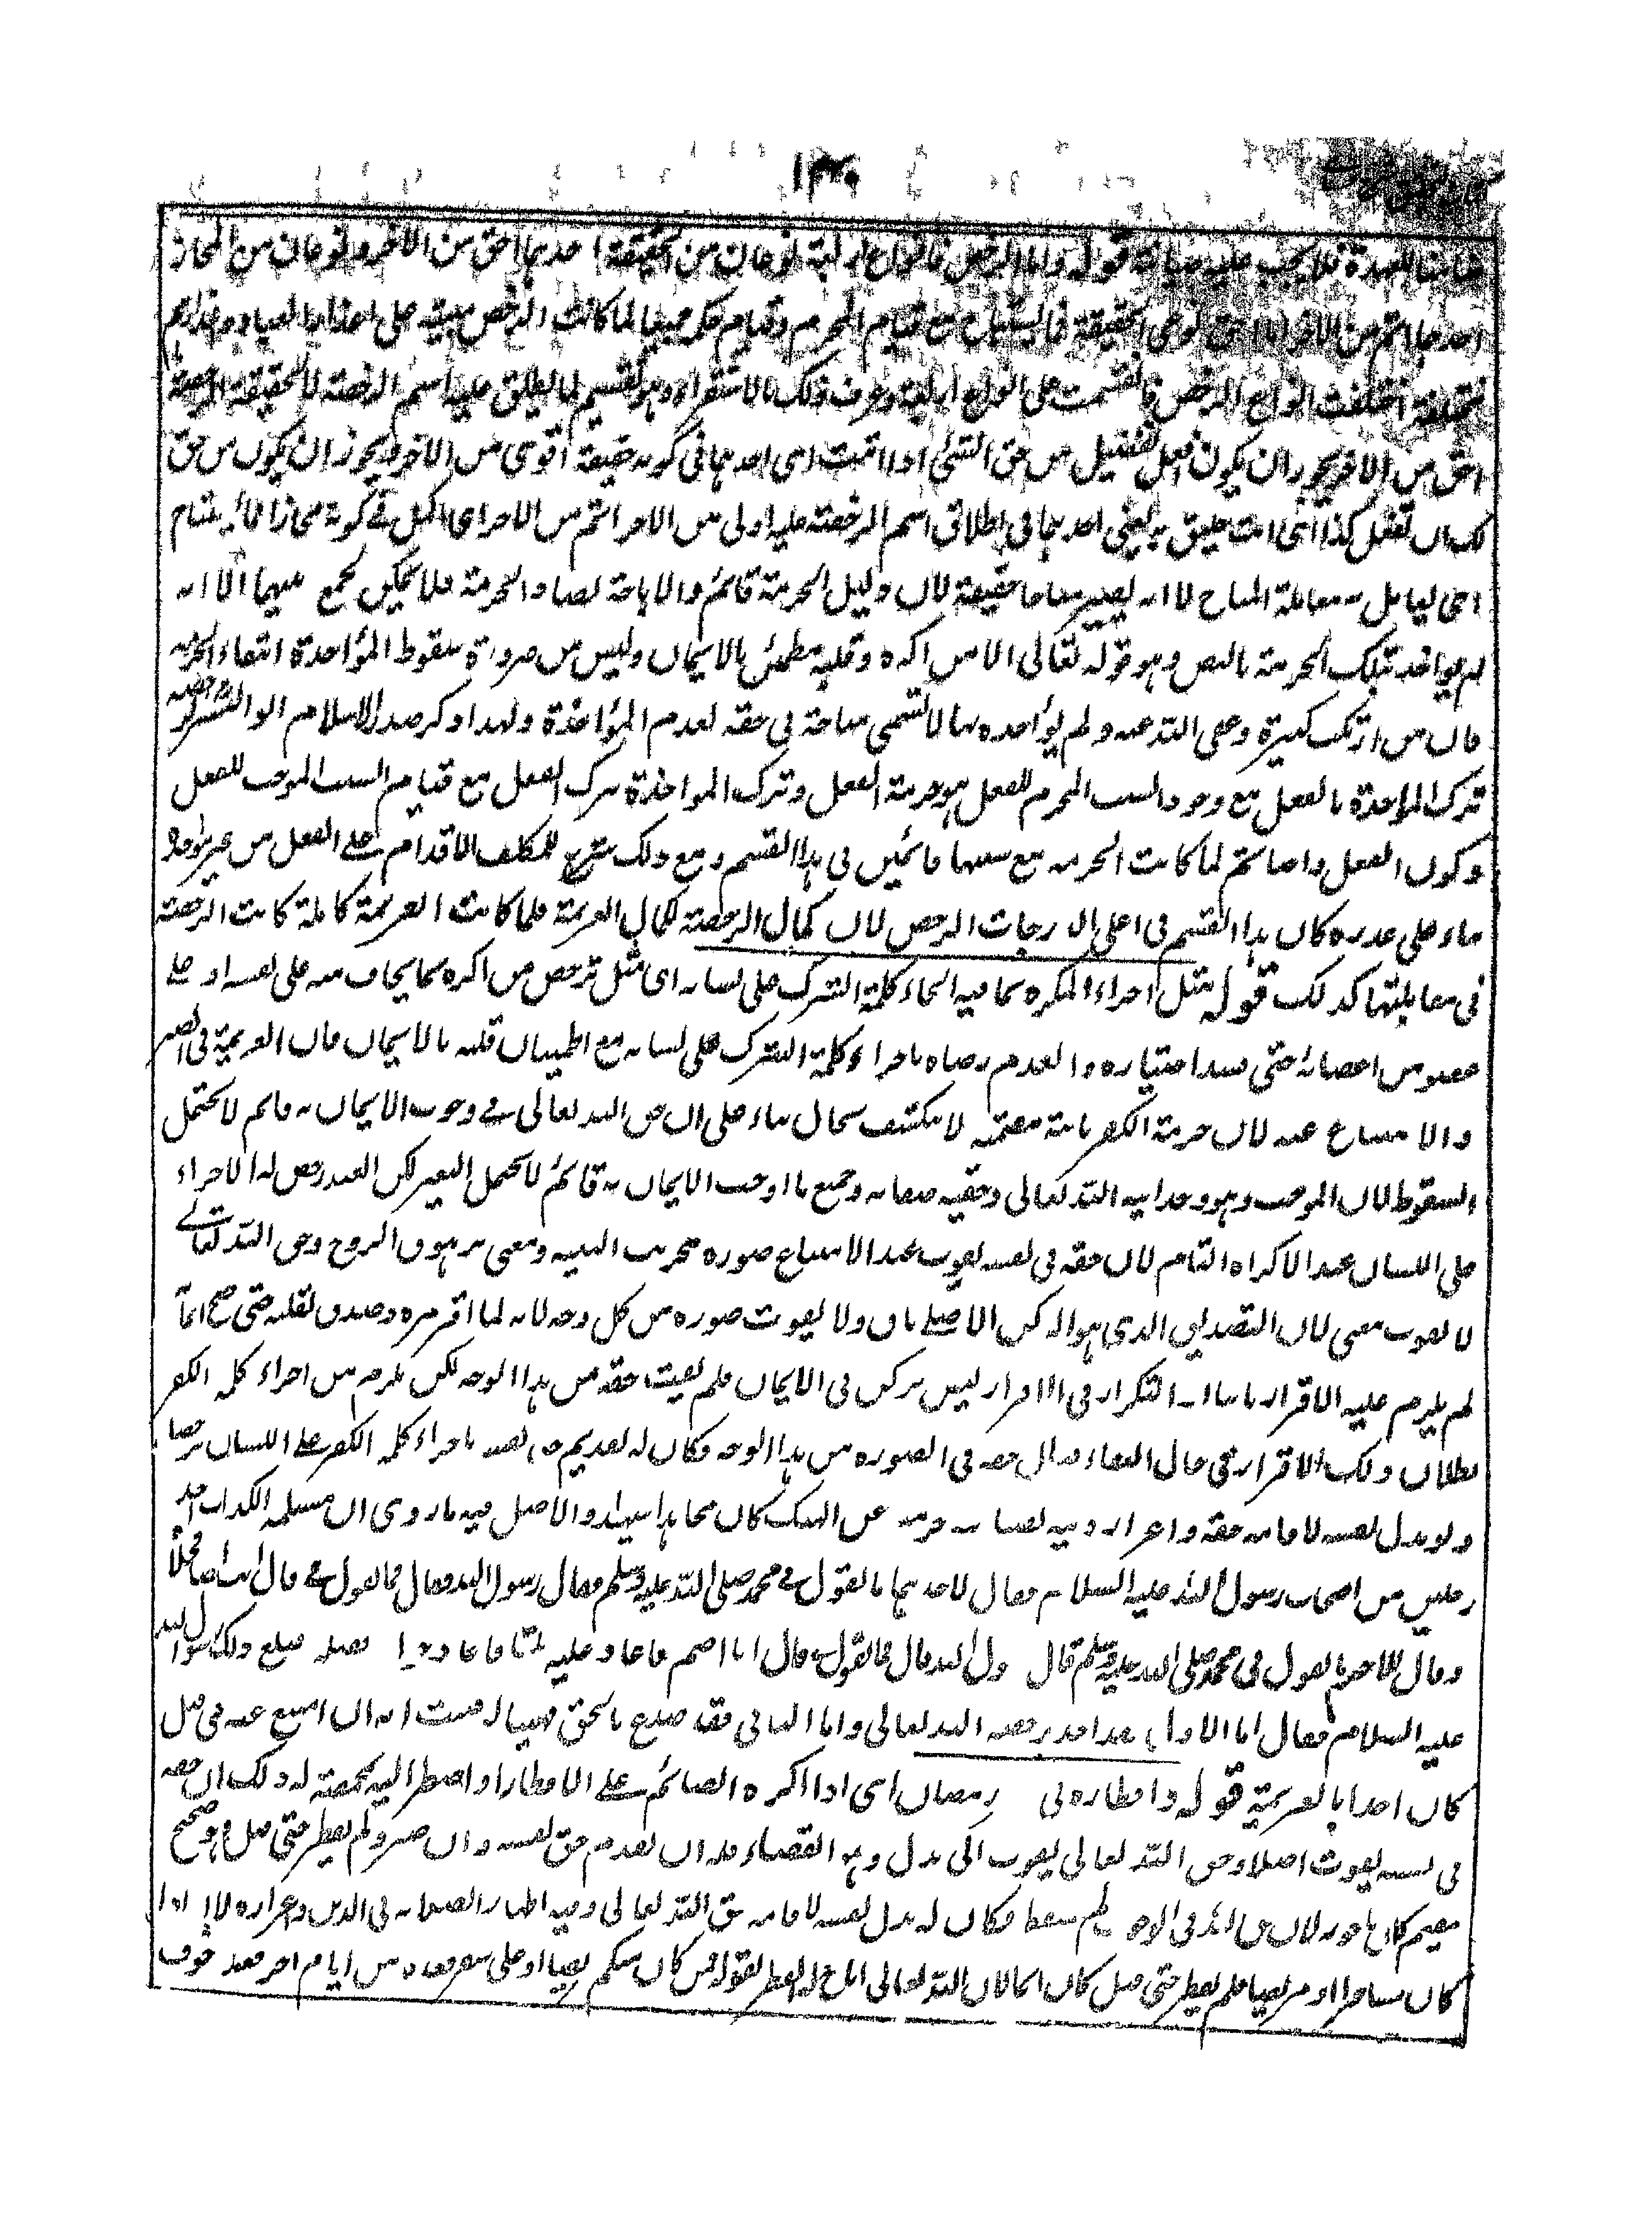 ١٣٢٠
ضامنا للعهدة فلا يجب عليه صيانة قوله واما الرخص فانواع اربعة نوعان من الحقيقة احدهما احق من الآخر ونوعان من المجاز
احدهما اتم من الآخر اما احق نوعى الحقيقة فما يستباح مع قيام المحرم وقيام حكمه جميعا لما كانت الرخص مبنية على اعذار العباد واعذارهم
مختلفة اختلفت انواع الرخص فانقسمت على انواع اربعة وعرف ذلك بالاستقراء وهو تقسيم لما يطلق عليه اسم الرخصة لا لحقيقة الرخصة
احق من الآخر يجوز ان يكون افعل تفضيل من حق الشئ اذا اثبت اى احدهما فى كونه حقيقة اقوى من الآخر ويجوز ان يكون من حق
لك ان تفعل كذا اى انت خليق به يعنى احدهما فى اطلاق اسم الرخصة عليه اولى من الآخر اتم من الآخر اى اكمل فى كونه مجازا فما يستباح
اى يعامل به معاملة المباح لا انه يصير مباحا حقيقة لان دليل الحرمة قائم والاباحة تضاد الحرمة فلا يمكن الجمع بينهما الا انه
لم يواخذ بتلك الحرمة بالنص وهو قوله تعالى الا من اكره وقلبه مطمئن بالايمان وليس من ضرورة سقوط المؤاخذة انتفاء الحرمة
فان من ارتكب كبيرة وعفى الله عنه ولم يؤاخذه بها لا تسمى مباحة فى حقه لعدم المؤاخذة ولهذا ذكر صدر الاسلام ابو اليسر الرخصة
ترك المؤاخذة بالفعل مع وجود السبب المحرم للفعل وحرمة الفعل وترك المواخذة بترك الفعل مع قيام السبب الموجب للفعل
وكون الفعل واجبا ثم لما كانت الحرمة مع سببها قائمين فى هذا القسم ومع ذلك شرع للمكلف الاقدام على الفعل من غير مؤاخذة
بناء على عذره كان هذا القسم فى اعلى الدرجات الرخص لان كمال الرخصة بكمال العزيمة فلما كانت العزيمة كاملة كانت الرخصة
فى مقابلتها كذلك قوله مثل اجراء المكره بما فيه الجاء كلمة الشرك على لسانه اى مثل ترخص من اكره بما يخاف منه على نفسه او على
عضو من اعضائه حتى فسد اختياره وانعدم رضاه باجراء كلمة الشرك على لسانه مع اطمينان قلبه بالايمان فان العزيمة فى الصبر
والامتناع عنه لان حرمة الكفر باتة مصمتة لا تنكشف بحال بناء على ان حق الله تعالى فى وجوب الايمان به قائم لا يحتمل
السقوط لان الموجب وهو وحدانية الله تعالى وحقية صفاته وجميع ما اوجب الايمان به قائم لا يحتمل التغير لكن العبد رخص له الاجراء
على اللسان عند الاكراه التام لان حقه فى نفسه يفوت عند الامتناع صورة بتخريب البنية ومعنى بزهوق الروح وحق الله تعالى
لا يفوت معنى لان التصديق الذى هو الركن الاصلى باق ولا يفوت صورة من كل وجه لانه لما اقر مرة وصدق بقلبه حتى صح ايمانه
لم يلزم عليه الاقرار ثانيا اذ التكرار فى الاقرار ليس بركن فى الايمان فلم يفت حقه من هذا الوجه لكن يلزم من اجراء كلمة الكفر
بطلان ذلك الاقرار فى حال البقاء فبطل حقه فى الصورة من هذا الوجه فكان له تقديم حق نفسه باجراء كلمة الكفر على اللسان ترخصا
ولو بذل نفسه لاقامة حقه واعزاز دينه لصيانة حرمته عن الهتك كان مجاهدا شهيدا والاصل فيه ما روى ان مسيلمة الكذاب اخذ
رجلين من اصحاب رسول الله عليه السلام فقال لاحدهما ما تقول فى محمد صلى الله عليه وسلم فقال رسول الله فقال فما تقول فى قال انت ايضا فخلاه
وقال للآخر ما تقول فى محمد صلى الله عليه وسلم قال رسول الله قال فما تقول فى قال انا اصم فاعاد عليه ثلثا فاعاد جوابه فقتله فبلغ ذلك رسول الله
عليه السلام فقال اما الاول فقد اخذ برخصة الله تعالى واما الثانى فقد صدع بالحق فهنيأ له فثبت انه ان امتنع عنه حتى قتل
كان اخذا بالعزيمة قوله وافطاره فى رمضان اى اذا اكره الصائم على الافطار او اضطر اليه لمخمصة له ذلك لان حقه
فى نفسه يفوت اصلا وحق الله تعالى يفوت الى بدل وهو القضاء فله ان يقدم حق نفسه وان صبر ولم يفطر حتى قتل وهو صحيح
مقيم كان ماجورا لان حق الله فى الوجوب لم يسقط فكان له بذل نفسه لاقامة حق الله تعالى وفيه اظهار الصلابة فى الدين واعزازه الا اذا
كان مسافرا او مريضا فلم يفطر حتى قتل كان اثما لان الله تعالى اباح له الفطر بقوله فمن كان منكم مريضا او على سفر فعدة من ايام اخر فعند خوف